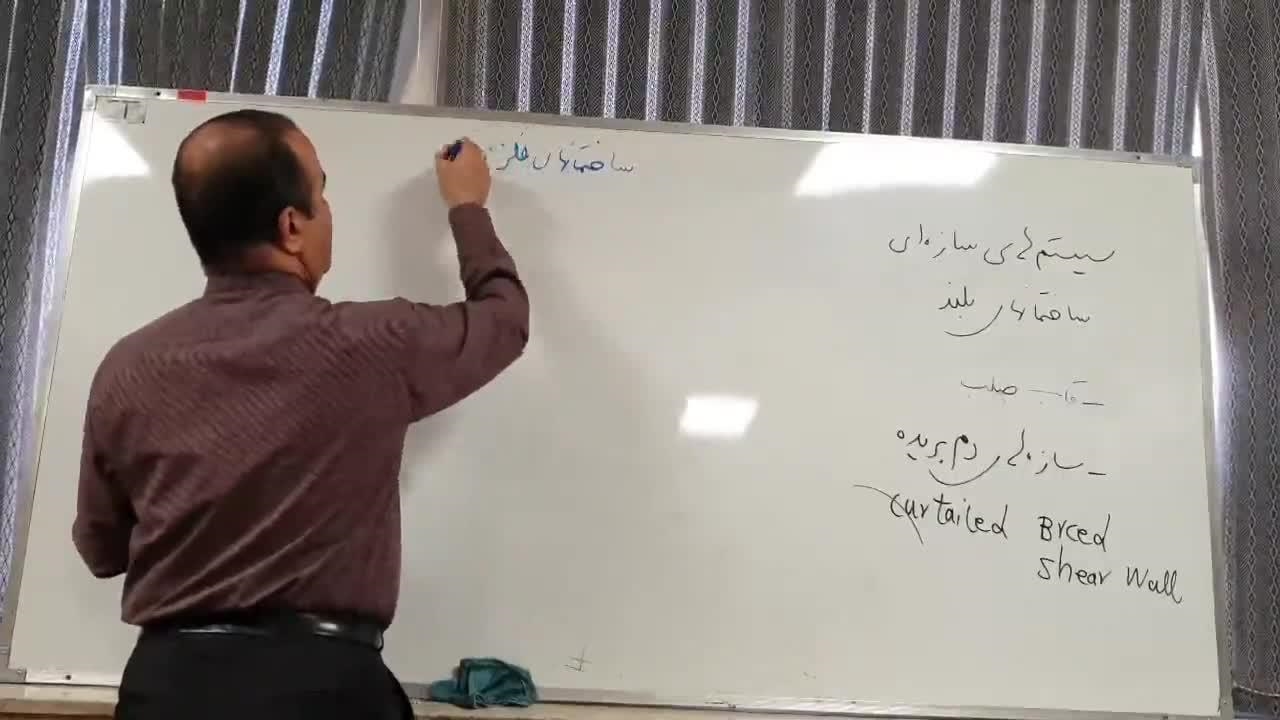 ساختمانهای فلزی
سیستم‌های سازه‌ای
ساختمانهای بلند
- قاب صلب
- سازه‌های دم بریده
curtailed Brced
shear Wall